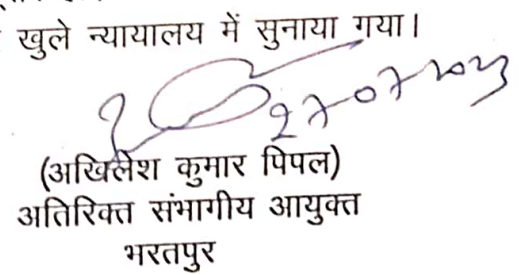 खुले न्यायालय में सुनाया गया।
27-07-2023
(अखिलेश कुमार पिपल)
अतिरिक्त संभागीय आयुक्त
भरतपुर